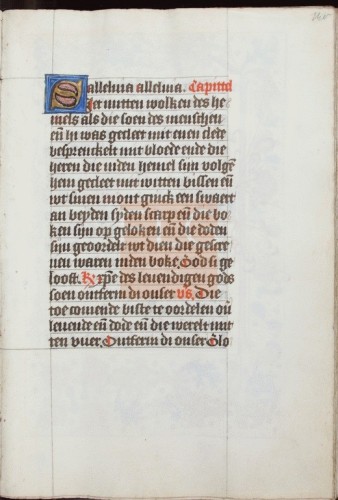 alleluia alleluia. Capittel
Siet mitten wolken des he
mels als die soen des menschen
en̄ hi was gecleet mit enen clede
besprenckelt mit bloede ende die
heren die inden hemel sijn volgē
hem gecleet mit witten bissen en̄
wt sinen mont ginck een swaert
an beyden syden scarp en̄ die bo
ken sijn op geloken en̄ die doden
sijn geoordelt wt dien die gescre
uen waren inden boke. God si ge
looft. R xp̄e des leuendigen gods
soen ontferm di onser vs. Die
toe comende biste te oordelen ou
leuende en̄ dode en̄ die werelt mit
ten vuer. Ontferm di onser Glo